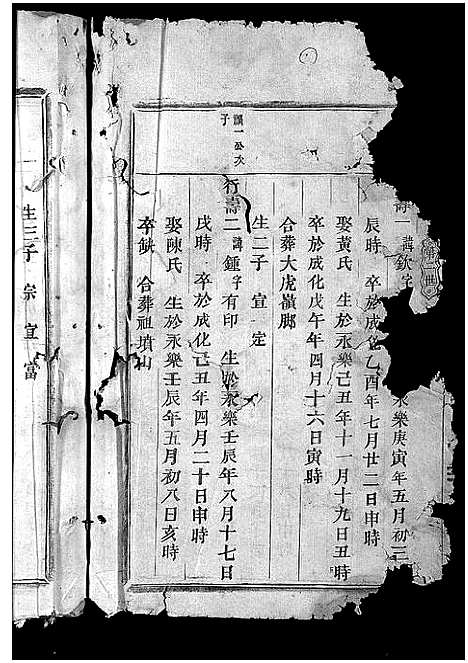 第一世
壽一 諱欽 字 永樂庚寅年五月初三
辰時 卒於成化乙酉年七月廿二日申時
娶黃氏 生於永樂己丑年十一月十九日丑時
卒於成化戊午年四月十六日寅時
合葬大虎嶺腳
生二子 宣 定
諱一公次
子
行壽二 諱鍾 字有印 生於永樂壬辰年八月十七日
戌時 卒於成化己丑年四月二十日申時
娶陳氏 生於永樂壬辰年五月初八日亥時
卒缺 合葬祖墳山
生三子 宗 宜 富